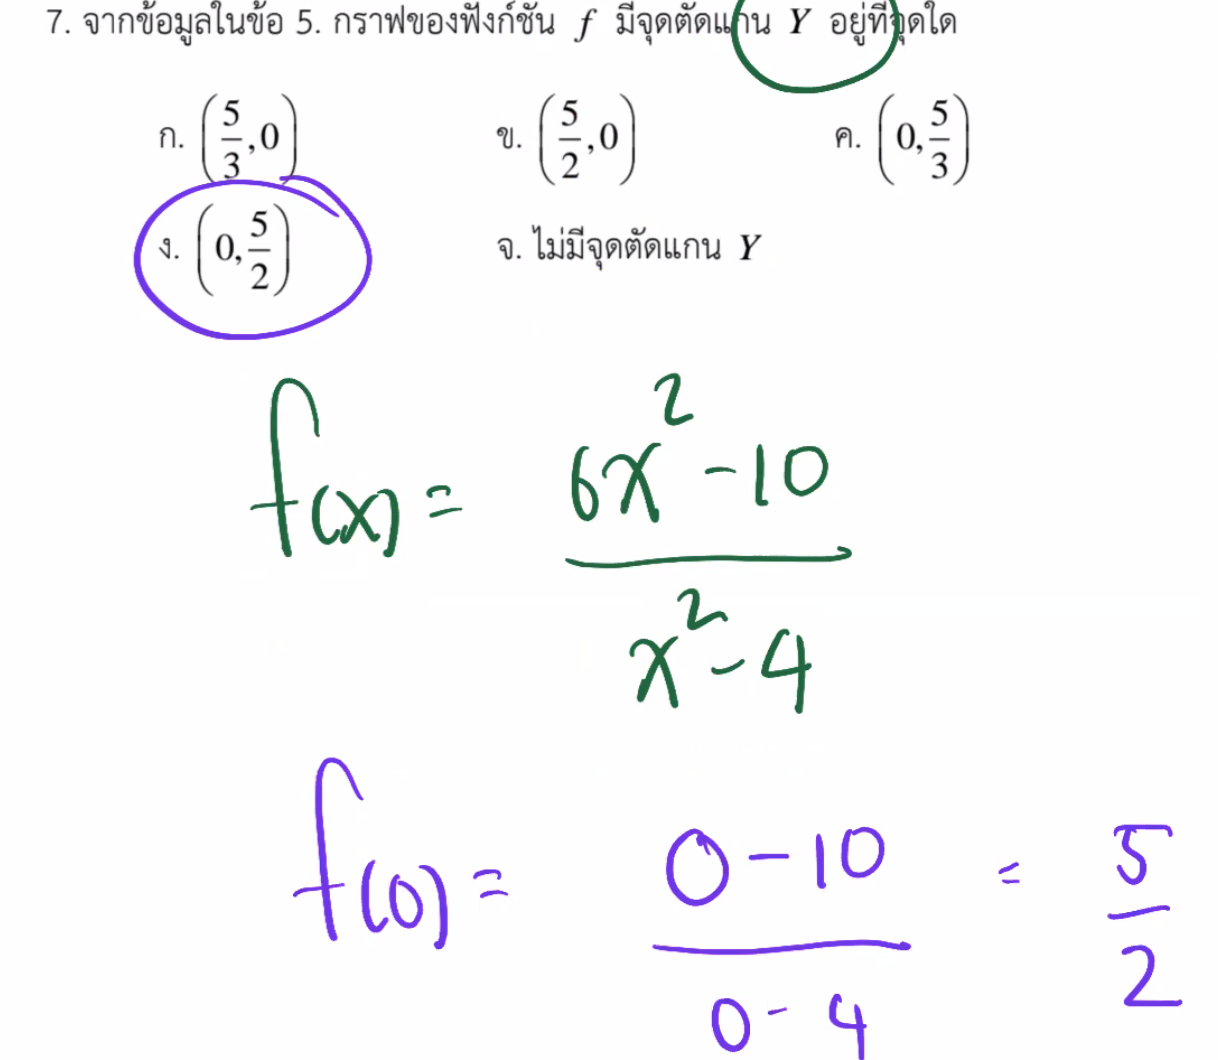 7. จากข้อมูลในข้อ 5. กราฟของฟังก์ชัน f มีจุดตัดแกน Y อยู่ที่จุดใด
ก. (5/3, 0) ข. (5/2, 0) ค. (0, 5/3)
ง. (0, 5/2) จ. ไม่มีจุดตัดแกน Y
f(x) = (6x² - 10)/(x² - 4)
f(0) = (0 - 10)/(0 - 4) = 5/2